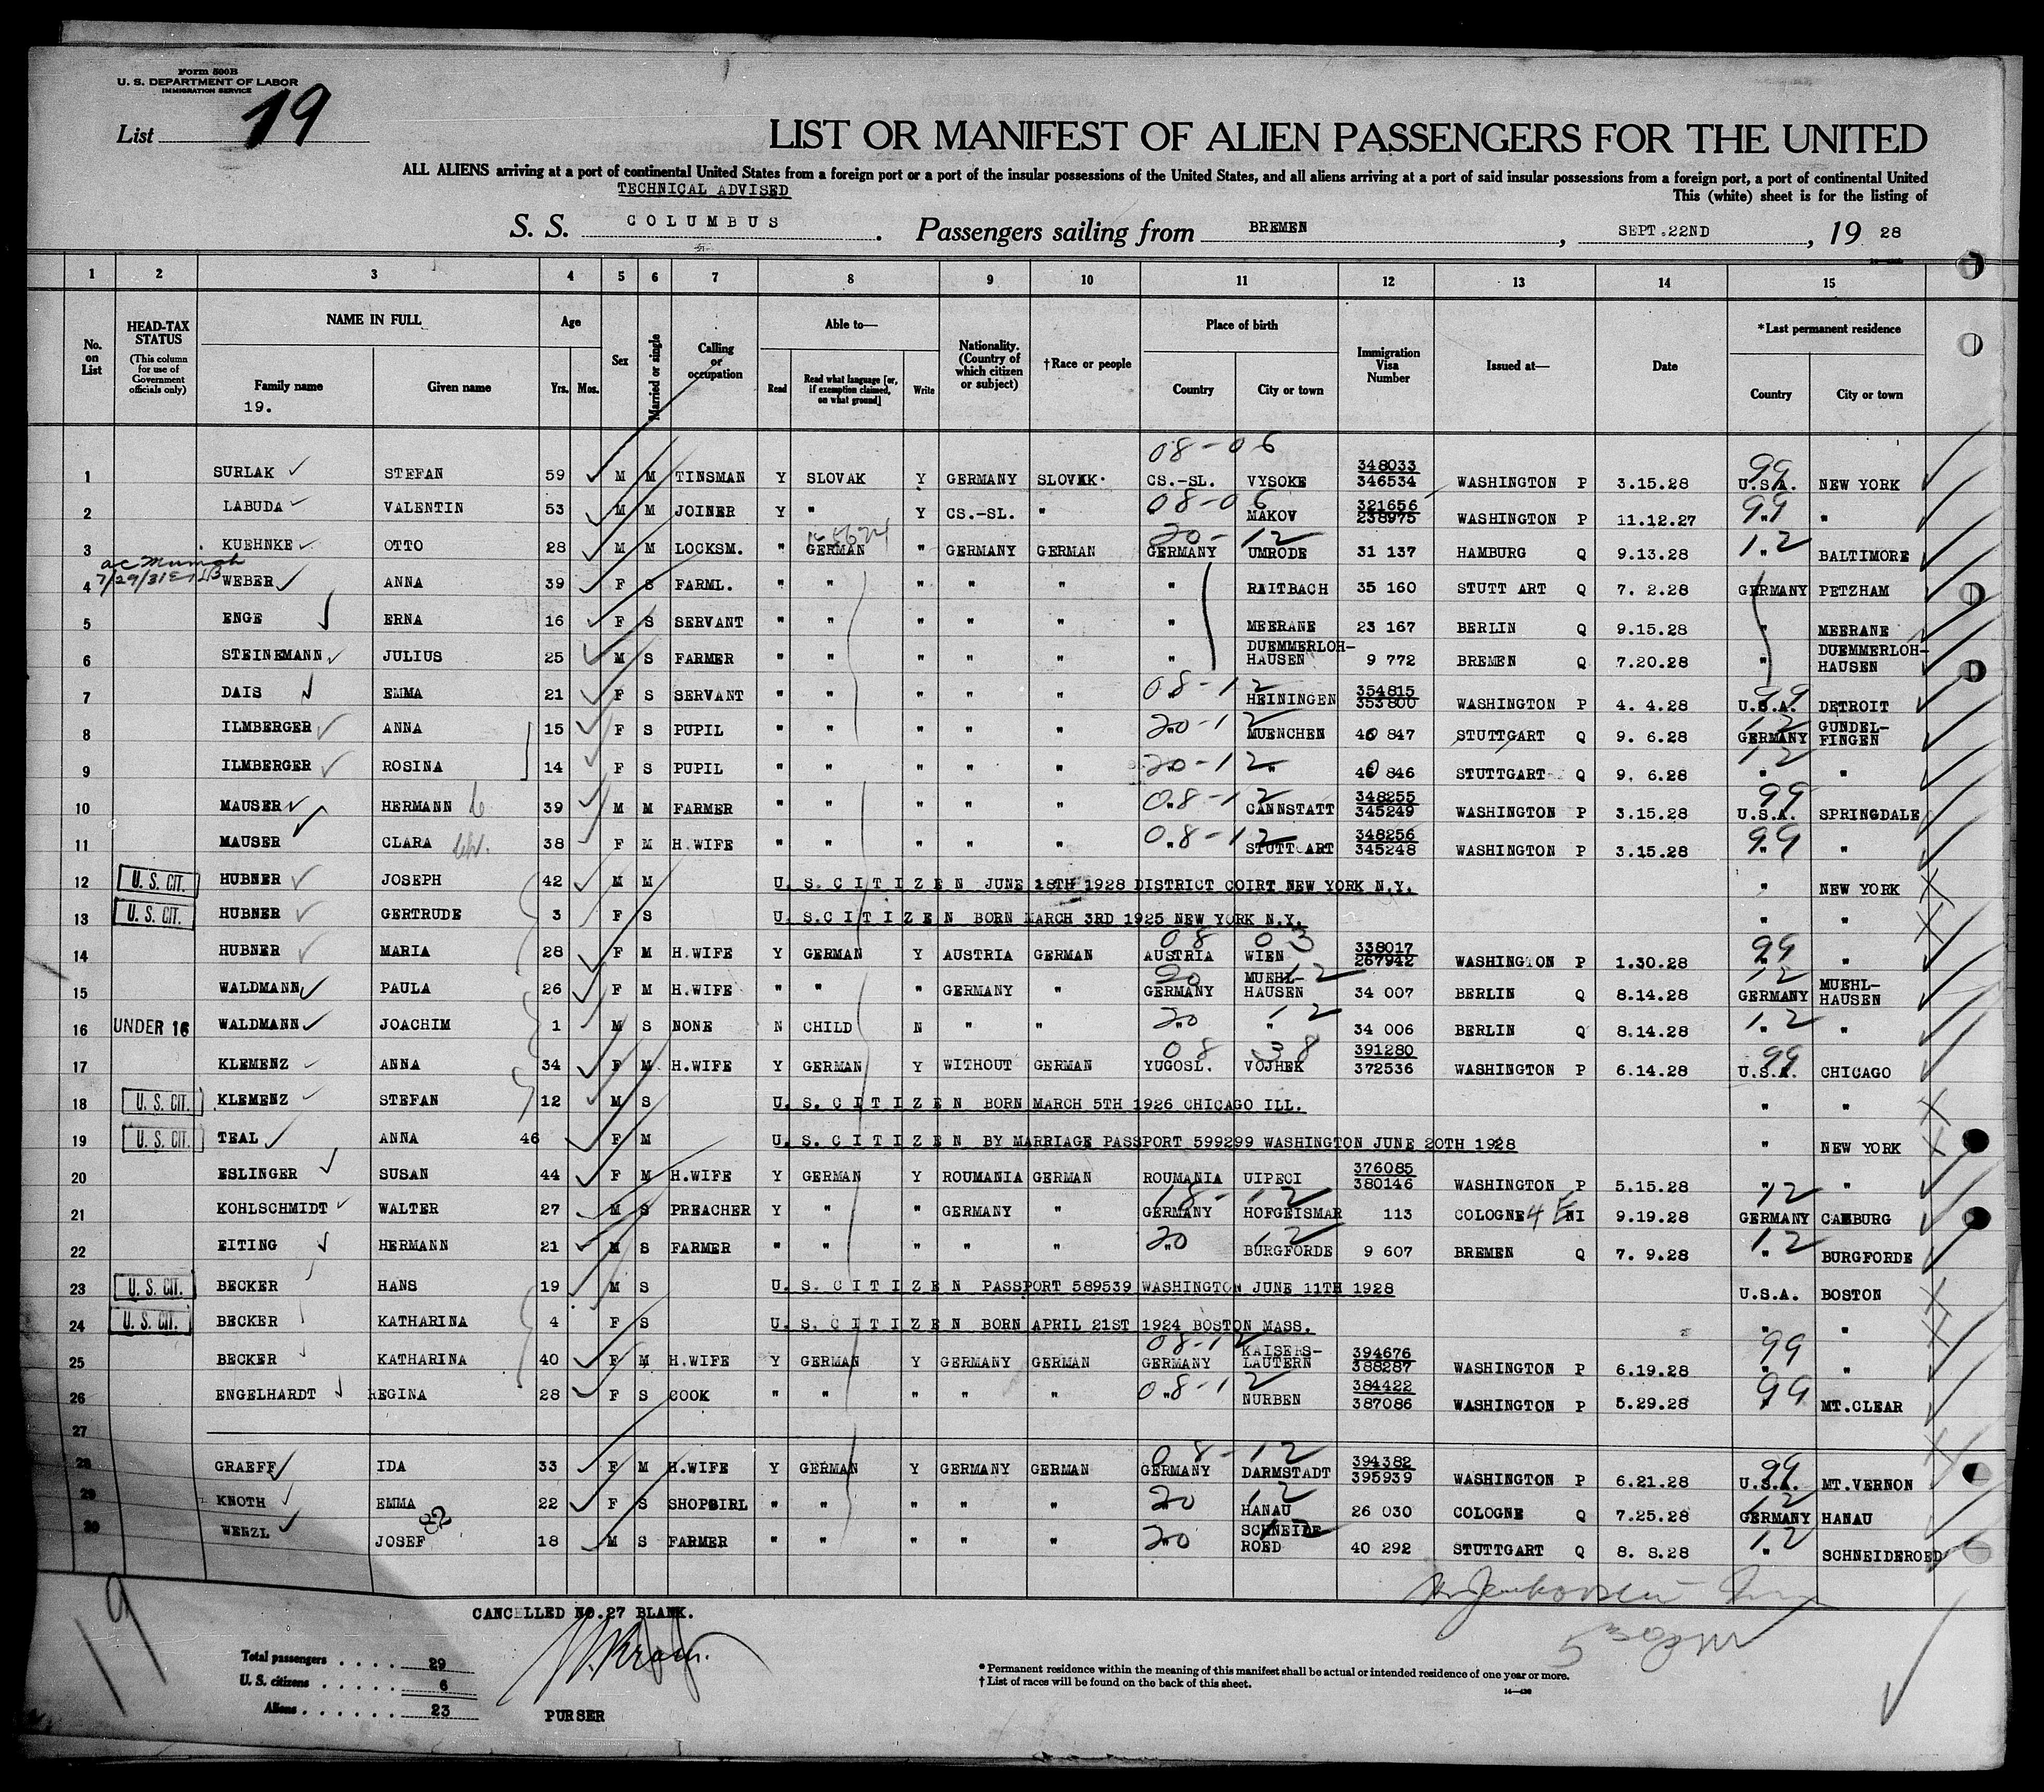 Form 500B
U. S. DEPARTMENT OF LABOR
IMMIGRATION SERVICE
List 19
LIST OR MANIFEST OF ALIEN PASSENGERS FOR THE UNITED
ALL ALIENS arriving at a port of continental United States from a foreign port or a port of the insular possessions of the United States, and all aliens arriving at a port of said insular possessions from a foreign port, a port of continental United
TECHNICAL ADVISED
This (white) sheet is for the listing of
S. S. COLUMBUS . Passengers sailing from BREMEN , SEPT.22ND , 19 28
1 2 3 4 5 6 7 8 9 10 11 12 13 14 15
No. on List
HEAD-TAX STATUS (This column for use of Government officials only)
NAME IN FULL
Family name
19.
Given name
Age
Yrs. Mos.
Sex
Married or single
Calling or occupation
Able to—
Read
Read what language [or, if exemption claimed, on what ground]
Write
Nationality. (Country of which citizen or subject)
†Race or people
Place of birth
Country
City or town
Immigration Visa Number
Issued at—
Date
*Last permanent residence
Country
City or town
08-06
1 SURLAK STEFAN 59 M M TINSMAN Y SLOVAK Y GERMANY SLOVAK CS.-SL. VYSOKE 348033 346534 WASHINGTON P 3.15.28 99 U.S.A. NEW YORK
2 LABUDA VALENTIN 53 M M JOINER Y " Y CS.-SL. " 08-06 MAKOV 321656 238975 WASHINGTON P 11.12.27 99 " "
3 KUEHNKE OTTO 28 M M LOCKSM. " GERMAN " GERMANY GERMAN 20-12 GERMANY UMRODE 31 137 HAMBURG Q 9.13.28 12 " BALTIMORE
7/29/31
4 WEBER ANNA 39 F S FARML. " " " " " " RAITBACH 35 160 STUTT ART Q 7. 2.28 GERMANY PETZHAM
5 ENGE ERNA 16 F S SERVANT " " " " " " MEERANE 23 167 BERLIN Q 9.15.28 " MEERANE
6 STEINEMANN JULIUS 25 M S FARMER " " " " " " DUEMMERLOH-HAUSEN 9 772 BREMEN Q 7.20.28 " DUEMMERLOH-HAUSEN
7 DAIS EMMA 21 F S SERVANT " " " " " 08-12 HEININGEN 354815 353800 WASHINGTON P 4. 4.28 99 U.S.A. DETROIT
8 ILMBERGER ANNA 15 F S PUPIL " " " " " 20-12 MUENCHEN 40 847 STUTTGART Q 9. 6.28 12 GERMANY GUNDEL-FINGEN
9 ILMBERGER ROSINA 14 F S PUPIL " " " " " 20-12 " 40 846 STUTTGART Q 9. 6.28 12 " "
10 MAUSER HERMANN 39 M M FARMER " " " " " 08-12 CANNSTATT 348255 345249 WASHINGTON P 3.15.28 99 U.S.A. SPRINGDALE
11 MAUSER CLARA 38 F M H.WIFE " " " " " 08-12 STUTT ART 348256 345248 WASHINGTON P 3.15.28 99 " "
12 U. S. CIT. HUBNER JOSEPH 42 M M U. S. C I T I Z E N JUNE 18TH 1928 DISTRICT COIRT NEW YORK N.Y. " NEW YORK
13 U. S. CIT. HUBNER GERTRUDE 3 F S U. S.C I T I Z E N BORN MARCH 3RD 1925 NEW YORK N.Y. " "
14 HUBNER MARIA 28 F M H.WIFE Y GERMAN Y AUSTRIA GERMAN 08 03 AUSTRIA WIEN 338017 267942 WASHINGTON P 1.30.28 99 " "
15 WALDMANN PAULA 26 F M H.WIFE " " " GERMANY " 20 12 GERMANY MUEHL-HAUSEN 34 007 BERLIN Q 8.14.28 12 GERMANY MUEHL-HAUSEN
16 UNDER 16 WALDMANN JOACHIM 1 M S NONE N CHILD N " " 20 12 " " 34 006 BERLIN Q 8.14.28 12 " "
17 KLEMENZ ANNA 34 F M H.WIFE Y GERMAN Y WITHOUT GERMAN 08 38 YUGOSL. VOJHEK 391280 372536 WASHINGTON P 6.14.28 99 U.S.A. CHICAGO
18 U. S. CIT. KLEMENZ STEFAN 12 M S U. S. C I T I Z E N BORN MARCH 5TH 1926 CHICAGO ILL. " "
19 U. S. CIT. TEAL ANNA 46 F M U. S. C I T I Z E N BY MARRIAGE PASSPORT 599299 WASHINGTON JUNE 20TH 1928 " NEW YORK
20 ESLINGER SUSAN 44 F M H.WIFE Y GERMAN Y ROUMANIA GERMAN ROUMANIA UIPECI 376085 380146 WASHINGTON P 5.15.28 " "
21 KOHLSCHMIDT WALTER 27 M S PREACHER Y " " GERMANY " 18-12 GERMANY HOFGEISMAR 113 COLOGNE 4 E NI 9.19.28 12 GERMANY CAMBURG
22 EITING HERMANN 21 M S FARMER " " " " " 20 12 " BURGFORDE 9 607 BREMEN Q 7. 9.28 12 " BURGFORDE
23 U. S. CIT. BECKER HANS 19 M S U. S. C I T I Z E N PASSPORT 589539 WASHINGTON JUNE 11TH 1928 U.S.A. BOSTON
24 U. S. CIT. BECKER KATHARINA 4 F S U. S. C I T I Z E N BORN APRIL 21ST 1924 BOSTON MASS. " "
25 BECKER KATHARINA 40 F M H.WIFE Y GERMAN Y GERMANY GERMAN 08-12 GERMANY KAISERS-LAUTERN 394676 388287 WASHINGTON P 6.19.28 99 " "
26 ENGELHARDT REGINA 28 F S COOK " " " " " 08-12 " NURBEN 384422 387086 WASHINGTON P 5.29.28 99 MT.CLEAR
27
28 GRAEFF IDA 33 F M H.WIFE Y GERMAN Y GERMANY GERMAN 08-12 GERMANY DARMSTADT 394382 395939 WASHINGTON P 6.21.28 99 U.S.A. MT.VERNON
29 KNOTH EMMA 22 F S SHOPGIRL " " " " " 20 12 " HANAU 26 030 COLOGNE Q 7.25.28 12 GERMANY HANAU
30 WENZL JOSEF 82 18 M S FARMER " " " " " 20 12 " SCHNEIDE ROED 40 292 STUTTGART Q 8. 8.28 12 " SCHNEIDEROED
CANCELLED NO.27 BLANK.
19
530pm
Total passengers . . . . 29
U. S. citizens . . . . . 6
Aliens . . . . . . 23
PURSER
* Permanent residence within the meaning of this manifest shall be actual or intended residence of one year or more.
† List of races will be found on the back of this sheet.
14—430